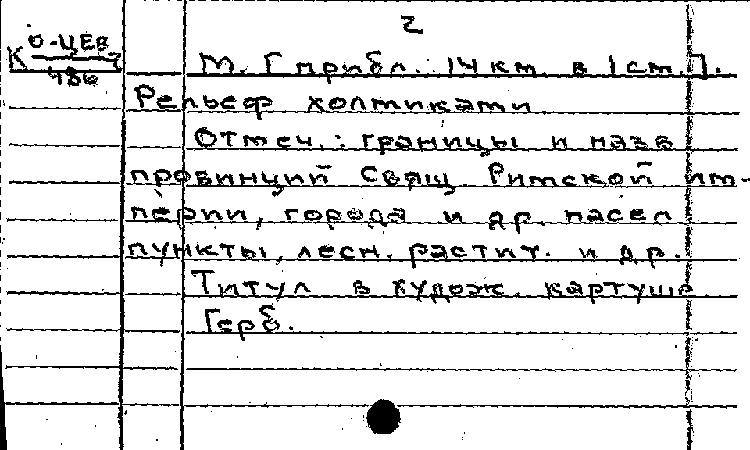 2
К О-ЦЕВ 7
486
М. [ прибл. 14 км в 1 см. ].
Рельеф холмиками
Отмеч.: границы и назв
провинций Свящ. Римской им-
перии, города и др. насел
пункты, лесн. растит. и др.
Титул в худож. картуше
Герб.